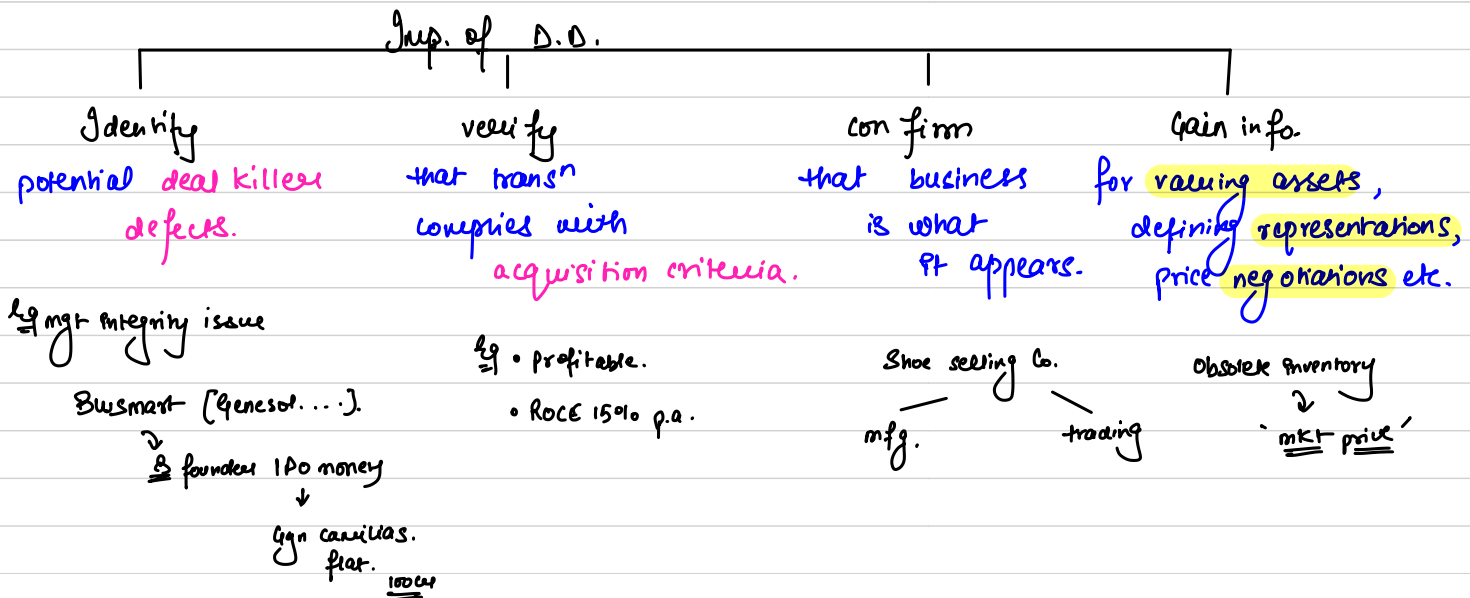 Imp. of D.D.
Identify
potential deal killers
defects.
Eg mgt integrity issue
Blusmart [Gensol....].
founder IPO money
Ggn camilias.
flat.
100cr
verify
that transⁿ
complies with
acquisition criteria.
Eg • Profitable.
• ROCE 15% p.a.
confirm
that business
is what
it appears.
Shoe selling Co.
mfg. trading
Gain info.
for valuing assets,
defining representations,
price negotiations etc.
Obsolete inventory
'mkt price'